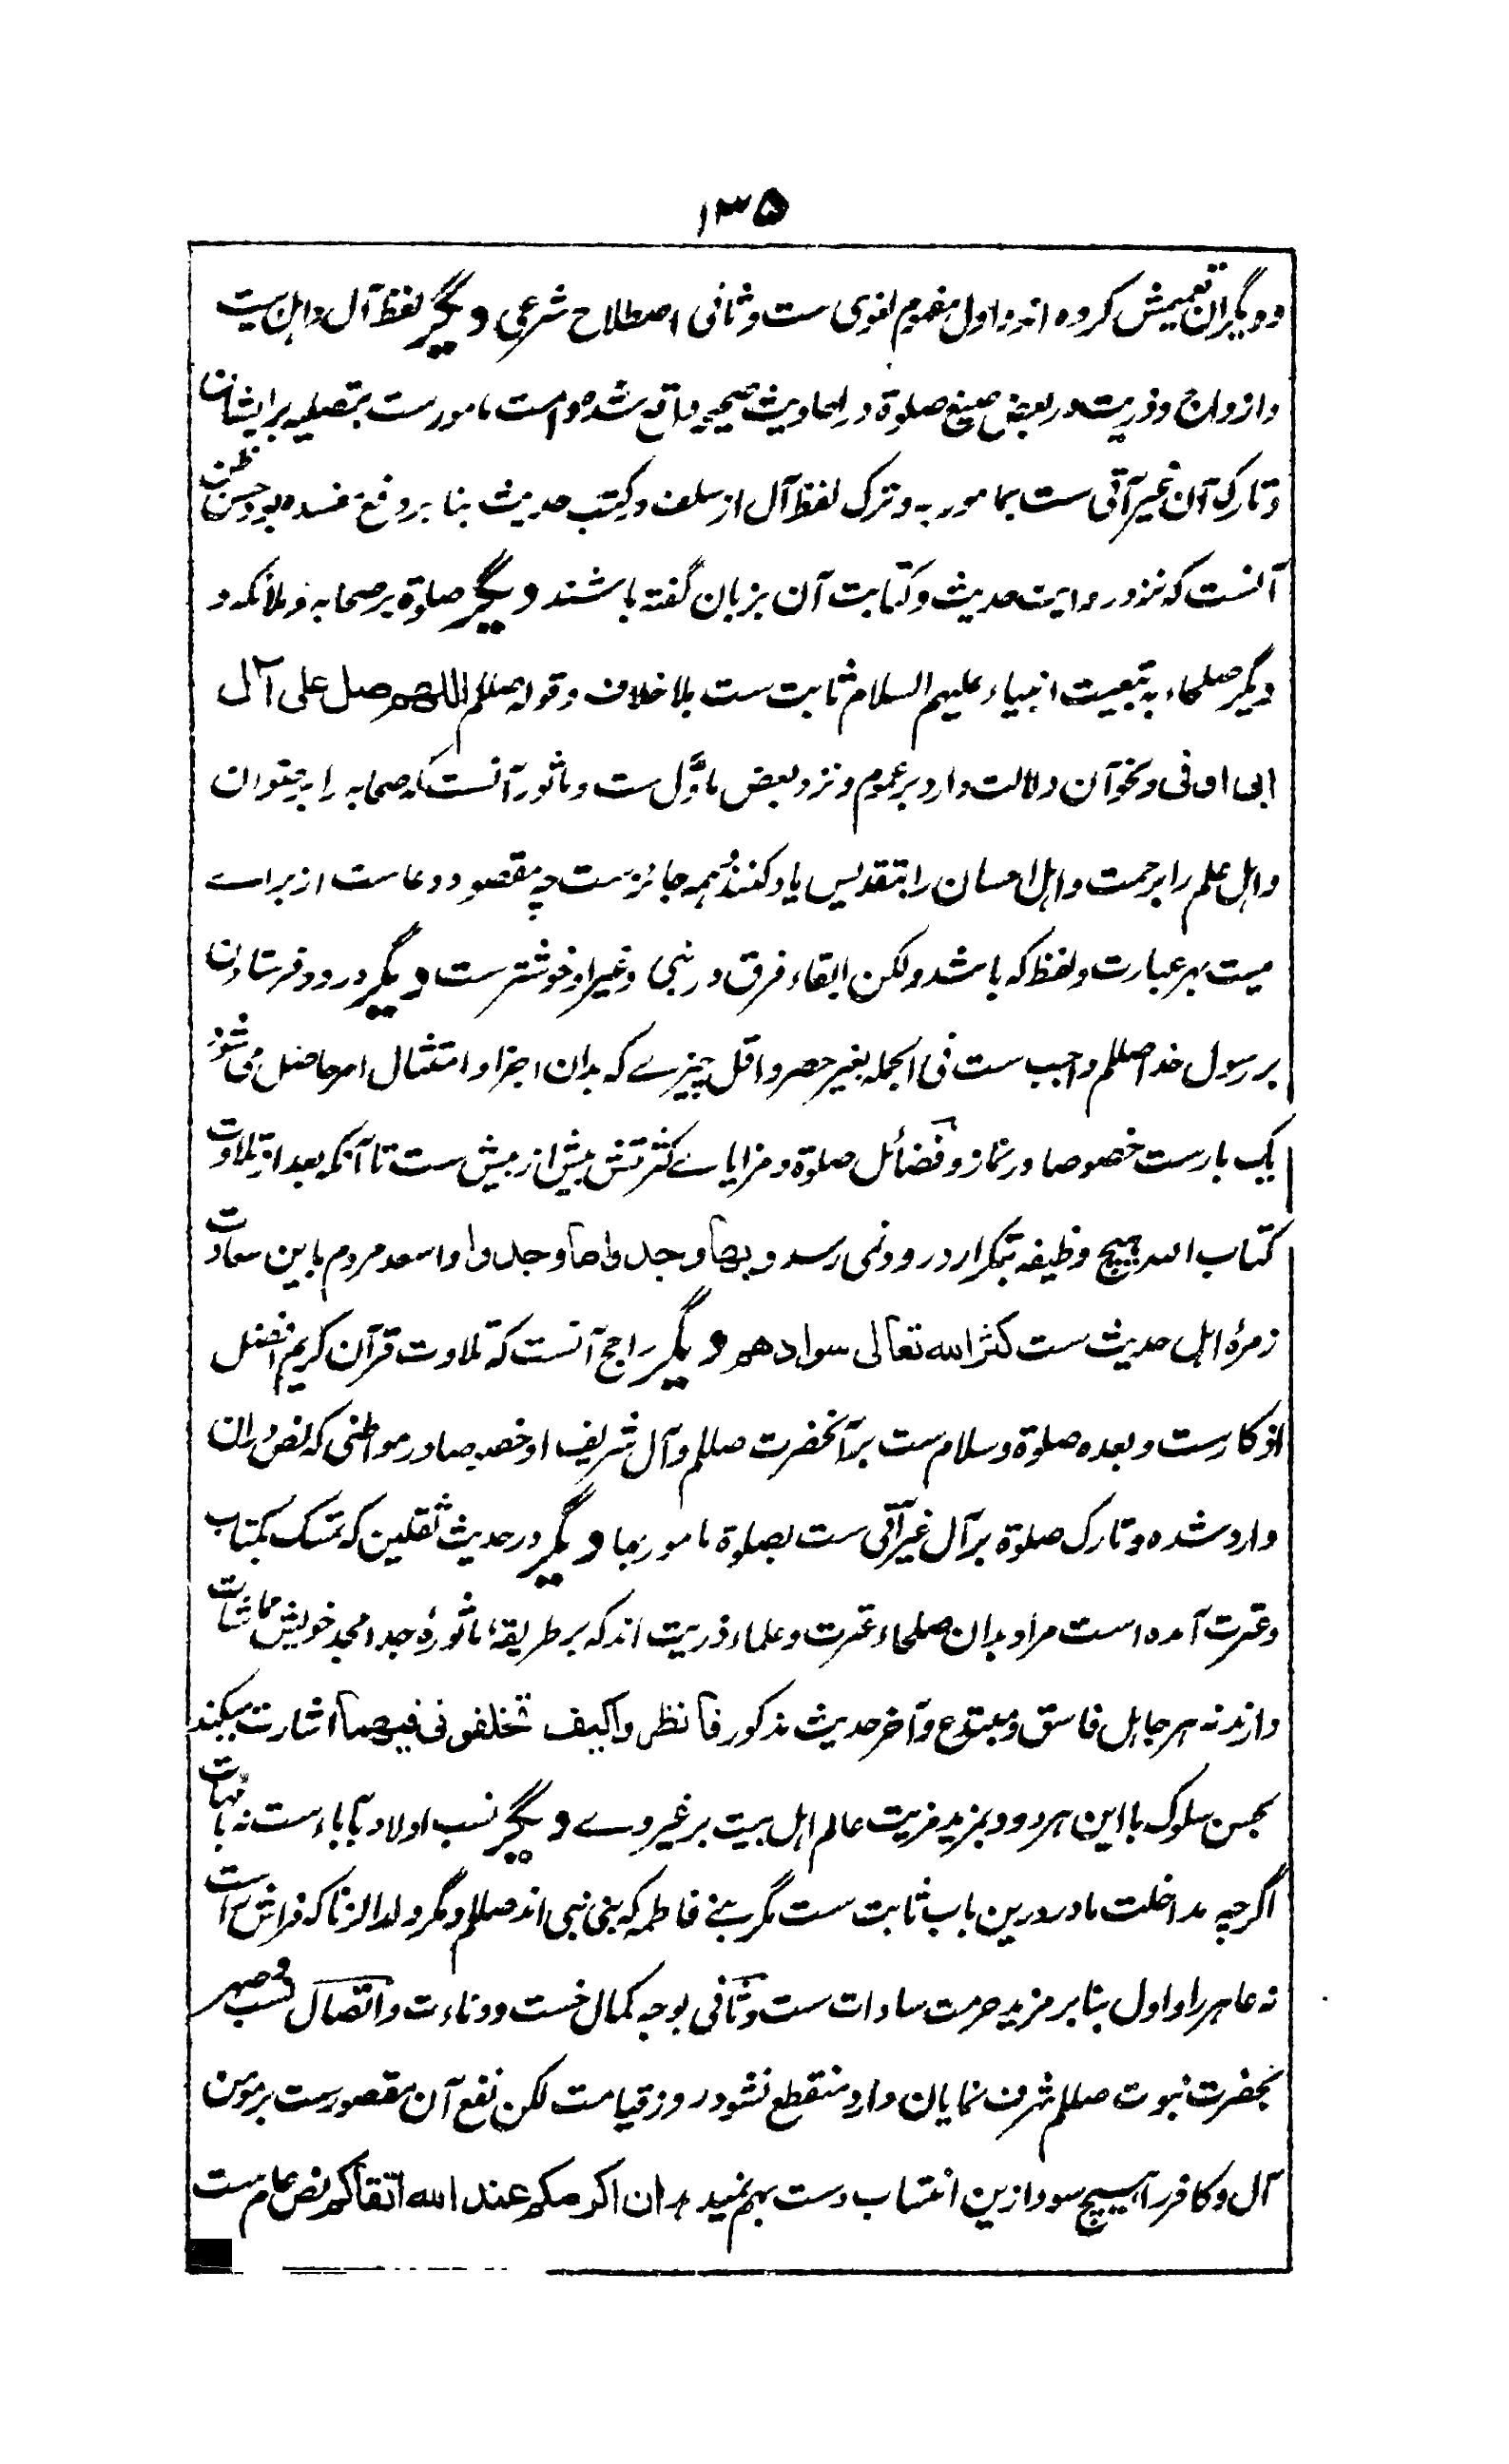 ۱۳۵
و دیگران تعمیمش کرده اند و اول مفهوم لغوی ست و ثانی اصطلاح شرعی دیگر لفظ آل و اہل بیت
و ازواج و ذریت در بعض صیغ صلوة در احادیث صحیحه واقع شده و امت مامورست بتصلیه بر ایشان
و تارک آن غیر آتی ست بمامور به و ترک لفظ آل از سلف در کتب حدیث بنا بر وقع مفسده بود و حسن ظن
آنست که نزد روایت حدیث و کتابت آن بزبان گفته باشند دیگر صلوة بر صحابه و ملائکه و
دیگر صلحاء به تبعیت انبیاء علیهم السلام ثابت ست بلا خلاف و قوله صللم اللهم صل علی آل
ابی اوفی و نحو آن دلالت دارد بر عموم و نزد بعض ماوّل ست و ماثور آنست که صحابه را برضوان
و اہل علم را برحمت و اہل احسان را بتقدیس یاد کنند و همه جائزست چه مقصود دعاست از برای
میت بہر عبارت و لفظ که باشد و لکن ابقاء فرق در نبی و غیر او خوشترست دیگر درود فرستادن
بر رسول خدا صللم واجب ست فی الجمله بغیر حصر و اقل چیزے که بدان اجزا و امتثال امر حاصل می شود
یک بارست خصوصا در نماز و فضائل صلوة و مزایاے کثرتش بیش از بیش ست تا آنکه بعد از تلاوت
کتاب الله هیچ وظیفه بتکرار درود نمی رسد و بها وجدوا ما وجدوا و اسعد مردم باین سعادت
زمرۂ اہل حدیث ست کثر الله تعالی سوادهم دیگر راجح آنست که تلاوت قرآن کریم افضل
اذکارست و بعده صلوة و سلام ست بر آنحضرت صللم و آل شریف او خصوصا در مواطنی که نص دران
وارد شده و تارک صلوة بر آل غیر آتی ست بصلوة مامور بها دیگر در حدیث ثقلین که تمسک بکتاب
و عترت آمده است مراد بدان صلحاء عترت و علماء ذریت اند که بر طریقۂ ماثورۂ جد امجد خویش مماشات
دارند نه ہر جاہل فاسق و مبتدع و آخر حدیث مذکور فانظروا کیف تخلفونی فیهما اشارت میکند
بحسن سلوک با این ہر دو و بمزید مزیت عالم اہل بیت بر غیر وے دیگر نسب اولاد بآباء ست نه بامهات
اگرچه مداخلت مادر درین باب ثابت ست مگر بنے فاطمه که بنی نبی اند صللم و مگر ولد الزنا که فراش است
نه عاہر را و اول بنا بر مزید حرمت سادات ست و ثانی بوجه کمال خست و دناءت و اتصال نسب و صہر
بحضرت نبوت صللم شرف نمایان دارد منقطع نشود روز قیامت لکن نفع آن مقصورست بر مومن
آل و کافر را هیچ سود ازین انتساب دست بہم نمید ہد ان اکرمکم عند الله اتقاکم نص عام ست